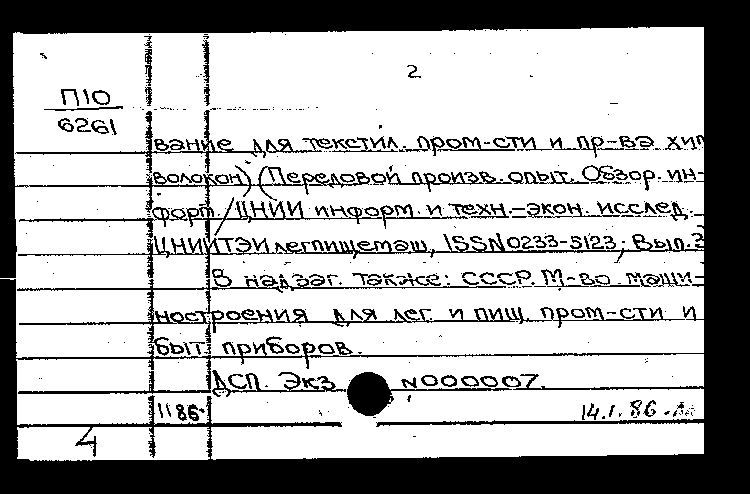 2
П10
6261
вание для текстил. пром-сти и пр-ва хим
волокон) (Передовой произв. опыт. Обзор. ин-
форм. / ЦНИИ информ. и техн.-экон. исслед.
ЦНИИТЭИлегпищемаш, ISSN 0233-5123; Вып. 3
В надзаг. также: СССР. М-во маши-
ностроения для лег. и пищ. пром-сти и
быт. приборов.
ДСП. Экз. N000007.
1186
14.1.86
4